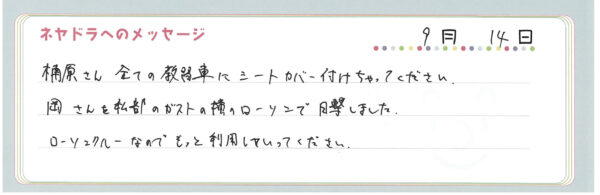 ネヤドラへのメッセージ
9月 14日
桶原さん 全ての教習車にシートカバー付けちゃってください.
岡さんを私部のガストの横のローソンで目撃しました.
ローソンクルーなのでもっと利用しちゃってください.